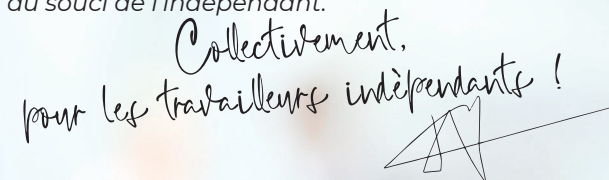 du souci de l'indépendant.
Collectivement,
pour les travailleurs indèpendants !